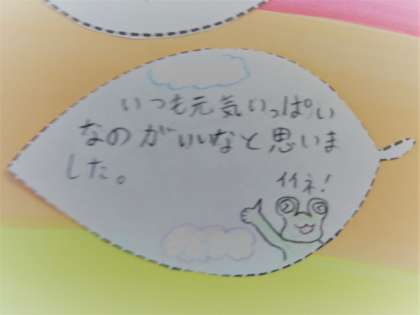 いつも元気いっぱい
なのがいいなと思いま
した。
イイネ!